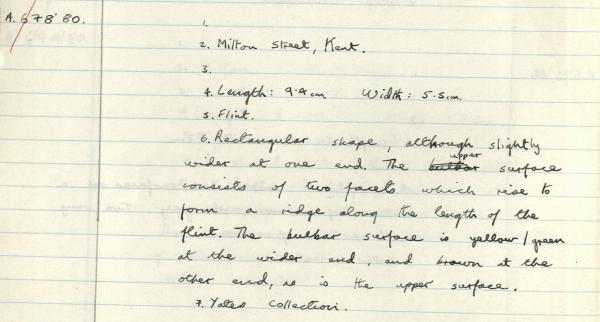 A.678'80.
1.
2. Milton Street, Kent.
3.
4. Length: 9.4cm Width: 5.5cm.
5. Flint.
6. Rectangular shape, although slightly
wider at one end. The bulbar upper surface
consists of two facets which rise to
form a ridge along the length of the
flint. The bulbar surface is yellow/green
at the wider end, and brown at the
other end, as is the upper surface.
7. Yates Collection.